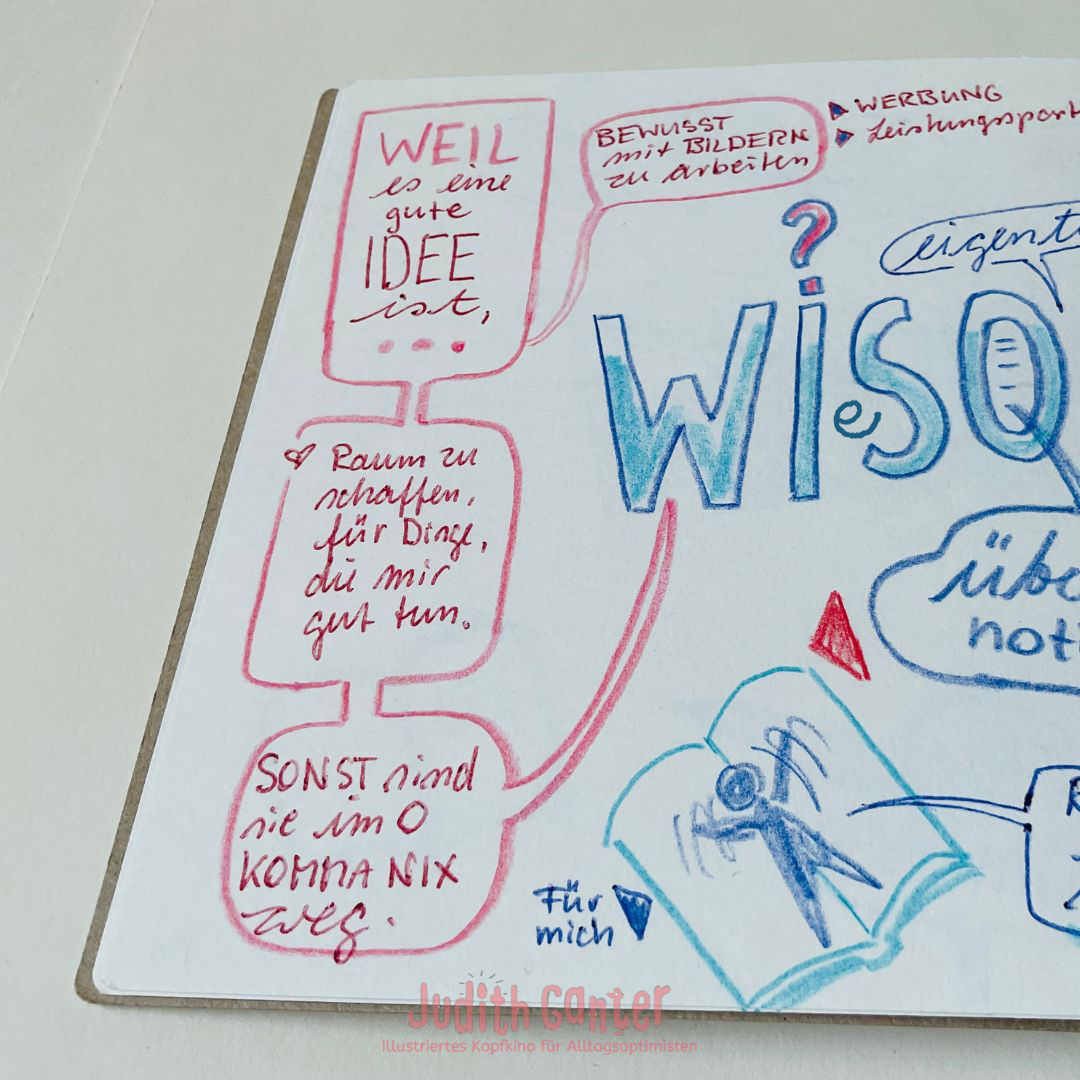 WEIL
es eine
gute
IDEE
ist,
...
BEWUSST
mit BILDERN
zu arbeiten
WERBUNG
Leistungssport
Raum zu
schaffen,
für Dinge,
die mir
gut tun.
SONST sind
sie im 0
KOMMA NIX
weg.
?
WieSO
eigent
übe
not
Für
mich
R
Judith Ganter
Illustriertes Kopfkino für Alltagsoptimisten